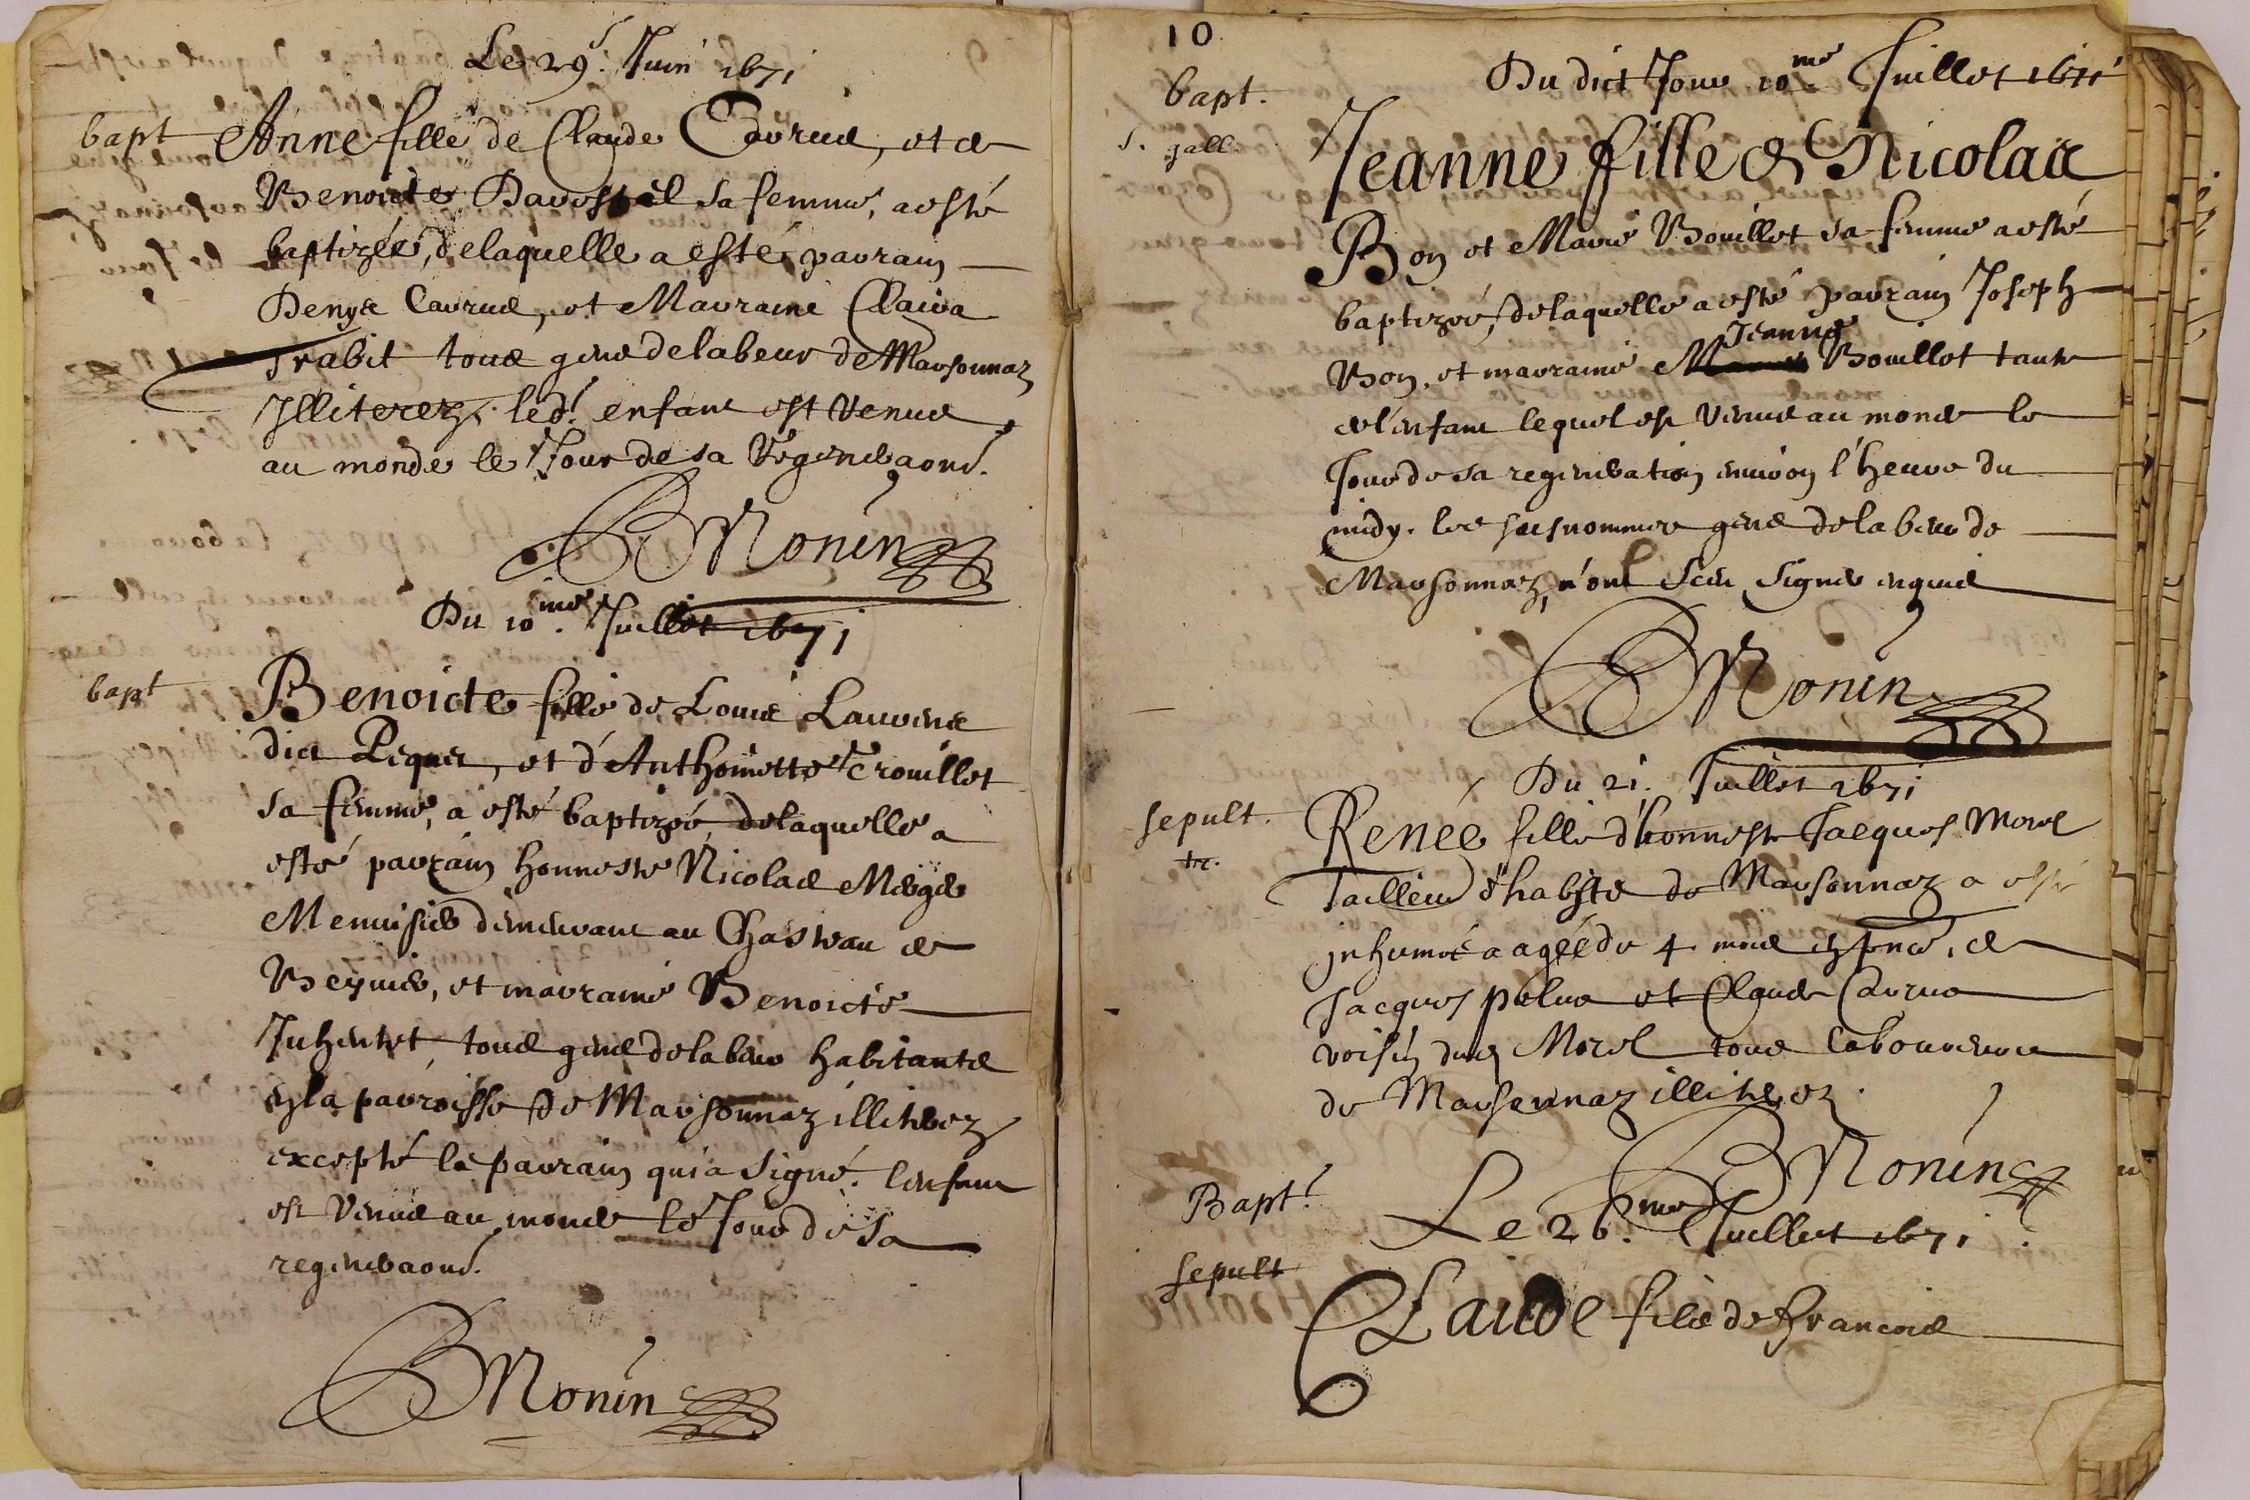 Le 29e. Juin 1671
bapt Anne fille de Claude Carrud, et de
Benoiste sa femme, a esté
baptizée, delaquelle a esté parrain
Denys Carrud, et Marraine Claira
Trabit tous gens delabeur de Marsonnaz
Illiterez. led. enfant est venue
au monde le Jour de sa Regeneraon.
Monin
Du 10.me Juillet 1671
bapt Benoicte fille de Louis Laurens
dict Piquet, et d'Anthoinette Trouillet
sa femme, a esté baptizée, delaquelle a
esté parrain honneste Nicolas
Menuisier demeurant au Chasteau de
et marraine Benoicte
tous gens delabeur habitants
en la parroisse de Marsonnaz illiterez
excepté le parrain qui a signé. lenfant
est venue au monde le Jour de sa
regeneraon.
Monin
10
Du dict Jour 10.me Juillet 1671
bapt.
Jeanne fille de Nicolas
Bon et Marie Bouillet sa femme a esté
baptizée, delaquelle a esté parrain Joseph
Jeanne
Bon, et marraine Bouillot tante
de l'enfant lequel est venue au monde le
Jour de sa regeneration environ l'heure du
midy. les susnommes gens delabeur de
Marsonnaz, n'ont sceu signer enquis
Monin
Du 21. Juillet 1671
sepult. Renée fille d'honneste Jacques Morel
Tailleur d'habits de Marsonnaz a esté
inhumée aagée de 4 mois en pnce, de
Jacques et Claude Carrud
voisin dud Morel tous laboureurs
de Marsonnaz illiterez.
Monin
Bapt.
Le 26.me Juillet 1671.
sepult
Claude fils de François